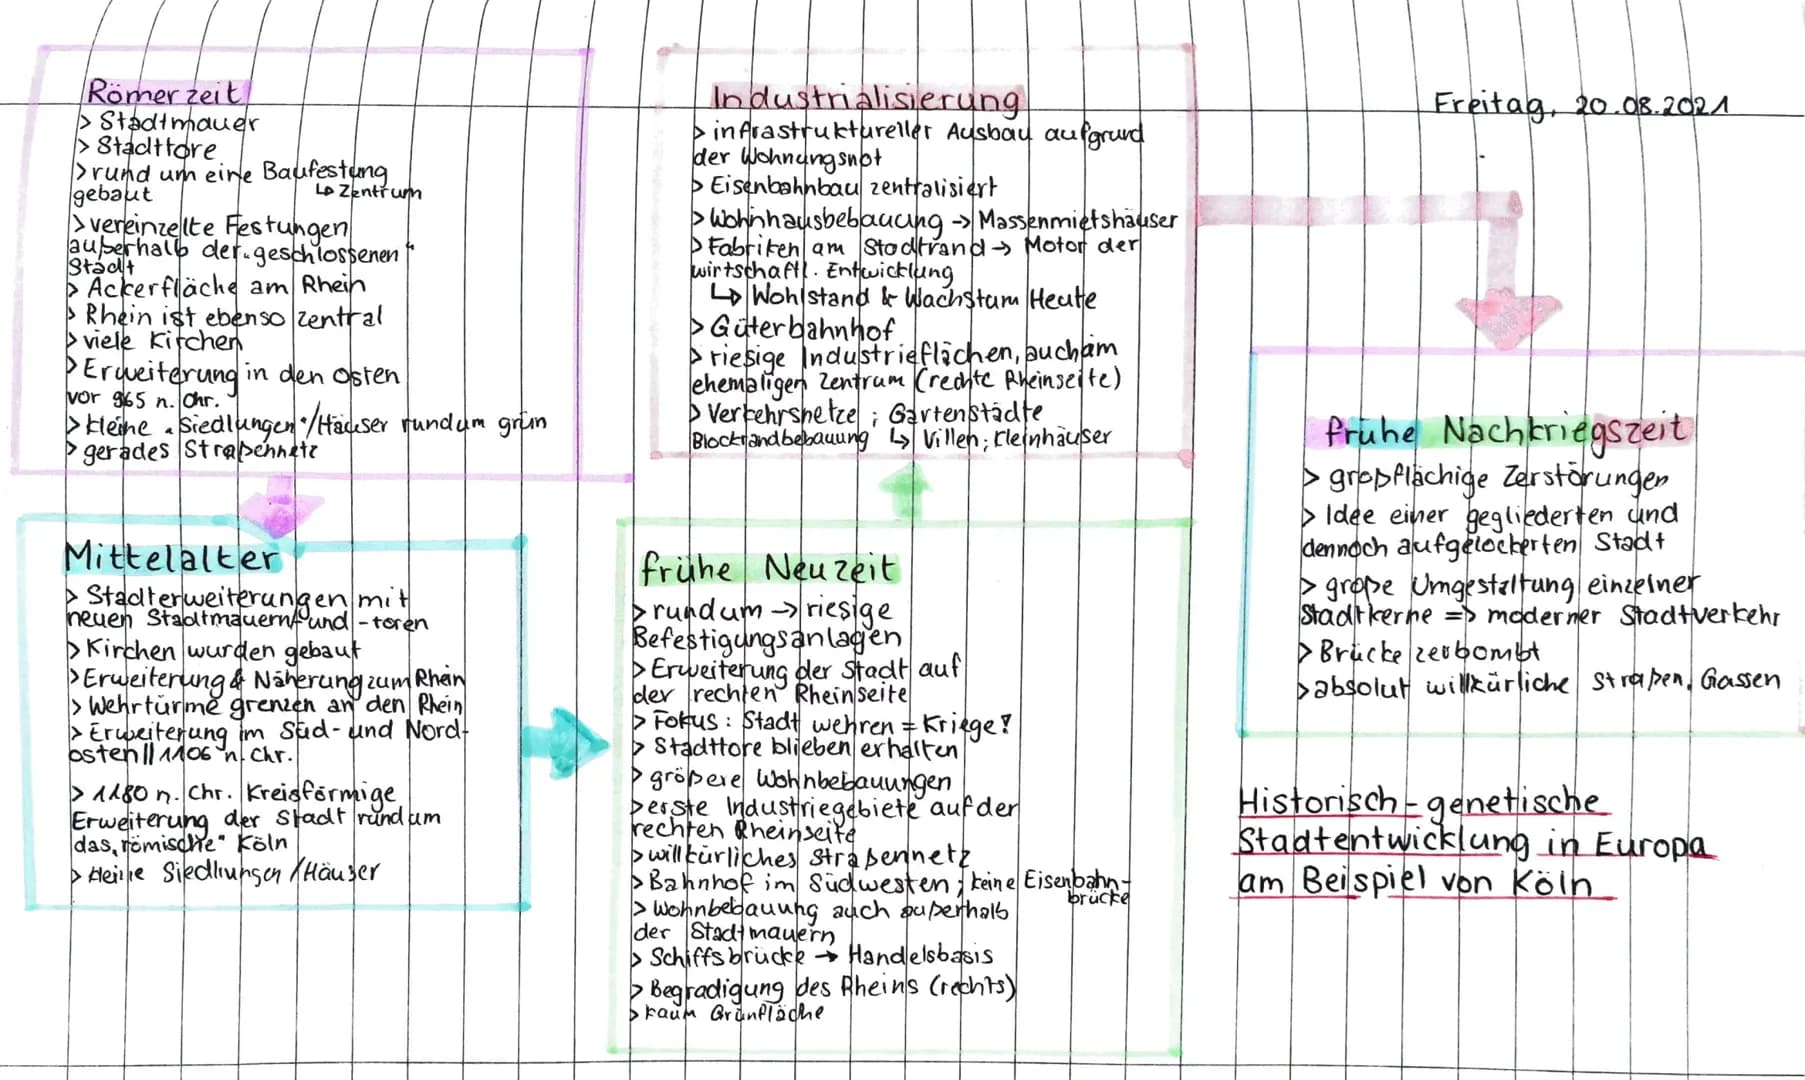 Römerzeit
> Stadtmauer
> Stadttore
> rund um eine Baufestung
gebaut ↳ Zentrum
> vereinzelte Festungen
außerhalb der „geschlossenen"
Stadt
> Ackerfläche am Rhein
> Rhein ist ebenso zentral
> viele Kirchen
> Erweiterung in den Osten
vor 965 n. Chr.
> kleine „Siedlungen"/Häuser rundum grün
> gerades Straßennetz
Mittelalter
> Stadterweiterungen mit
neuen Stadtmauern und -toren
> Kirchen wurden gebaut
> Erweiterung & Näherung zum Rhein
> Wehrtürme grenzen an den Rhein
> Erweiterung im Süd- und Nord-
osten || 1106 n. Chr.
> 1180 n. Chr. Kreisförmige
Erweiterung der Stadt rund um
das „römische" Köln
> kleine Siedlungen/Häuser
Industrialisierung
> infrastruktureller Ausbau aufgrund
der Wohnungsnot
> Eisenbahnbau zentralisiert
> Wohnhausbebauung → Massenmietshäuser
> Fabriken am Stadtrand → Motor der
wirtschaftl. Entwicklung
↳ Wohlstand & Wachstum Heute
> Güterbahnhof
> riesige Industrieflächen, auch am
ehemaligen Zentrum (rechte Rheinseite)
> Verkehrsnetze ; Gartenstädte
Blockrandbebauung ↳ Villen; Kleinhäuser
frühe Neuzeit
> rundum → riesige
Befestigungsanlagen
> Erweiterung der Stadt auf
der rechten Rheinseite
> Fokus: Stadt wehren = Kriege?
> Stadttore blieben erhalten
> größere Wohnbebauungen
> erste Industriegebiete auf der
rechten Rheinseite
> willkürliches Straßennetz
> Bahnhof im Südwesten ; keine Eisenbahn-
brücke
> Wohnbebauung auch außerhalb
der Stadtmauern
> Schiffsbrücke → Handelsbasis
> Begradigung des Rheins (rechts)
> kaum Grünfläche
Freitag, 20.08.2021
frühe Nachkriegszeit
> großflächige Zerstörungen
> Idee einer gegliederten und
dennoch aufgelockerten Stadt
> große Umgestaltung einzelner
Stadtkerne => moderner Stadtverkehr
> Brücke zerbombt
> absolut willkürliche Straßen, Gassen
Historisch-genetische
Stadtentwicklung in Europa
am Beispiel von Köln